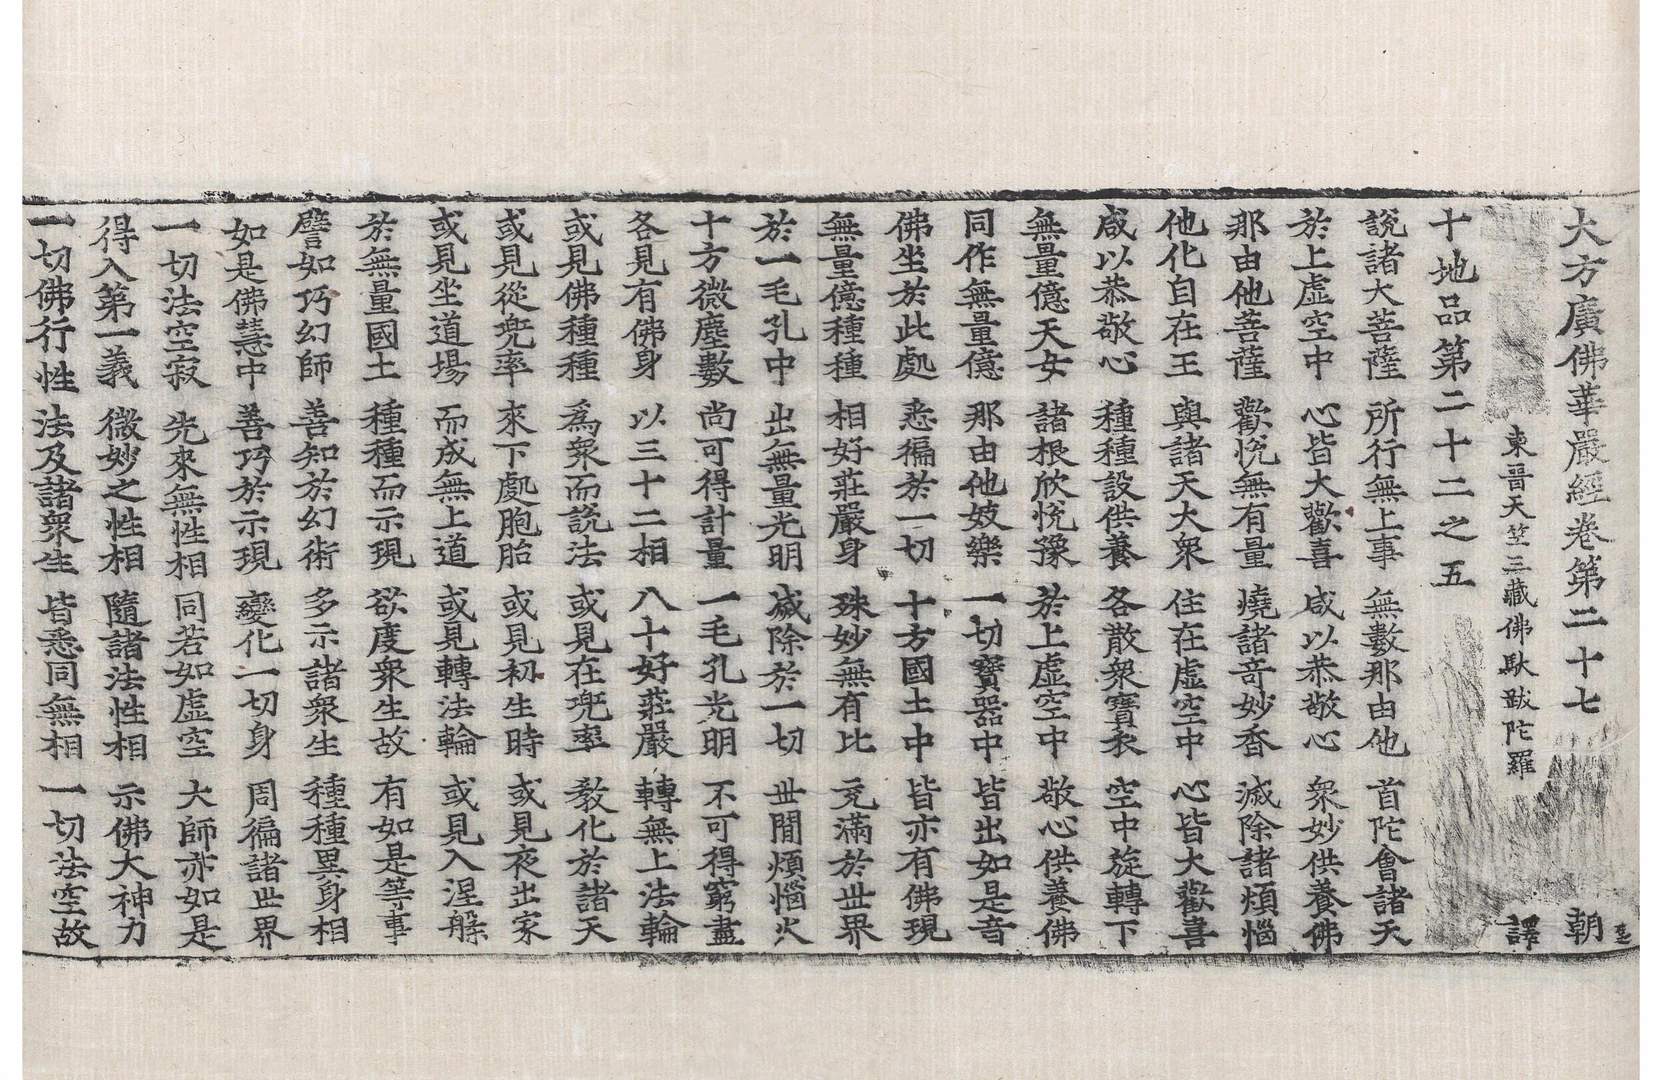 大方廣佛華嚴經卷第二十七　朝
東晉天竺三藏佛馱跋陀羅　譯
十地品第二十二之五
說諸大菩薩　所行無上事　無數那由他　首陀會諸天
於上虛空中　心皆大歡喜　咸以恭敬心　衆妙供養佛
那由他菩薩　歡悅無有量　燒諸奇妙香　滅除諸煩惱
他化自在王　與諸天大衆　住在虛空中　心皆大歡喜
咸以恭敬心　種種設供養　各散衆寶衣　空中旋轉下
無量億天女　諸根欣悅豫　於上虛空中　敬心供養佛
同作無量億　那由他妓樂　一切寶器中　皆出如是音
佛坐於此處　悉徧於一切　十方國土中　皆亦有佛現
無量億種種　相好莊嚴身　殊妙無有比　充滿於世界
於一毛孔中　出無量光明　滅除於一切　世間煩惱火
十方微塵數　尚可得計量　一毛孔光明　不可得窮盡
各見有佛身　以三十二相　八十好莊嚴　轉無上法輪
或見佛種種　爲衆而說法　或見在兜率　教化於諸天
或見從兜率　來下處胞胎　或見初生時　或見夜出家
或見坐道場　而成無上道　或見轉法輪　或見入涅槃
於無量國土　種種而示現　欲度衆生故　有如是等事
譬如巧幻師　善知於幻術　多示諸衆生　種種異身相
如是佛慧中　善巧於示現　變化一切身　周徧諸世界
一切法空寂　先來無性相　同若如虛空　大師亦如是
得入第一義　微妙之性相　隨諸法性相　示佛大神力
一切佛行性　法及諸衆生　皆悉同無相　一切法空故